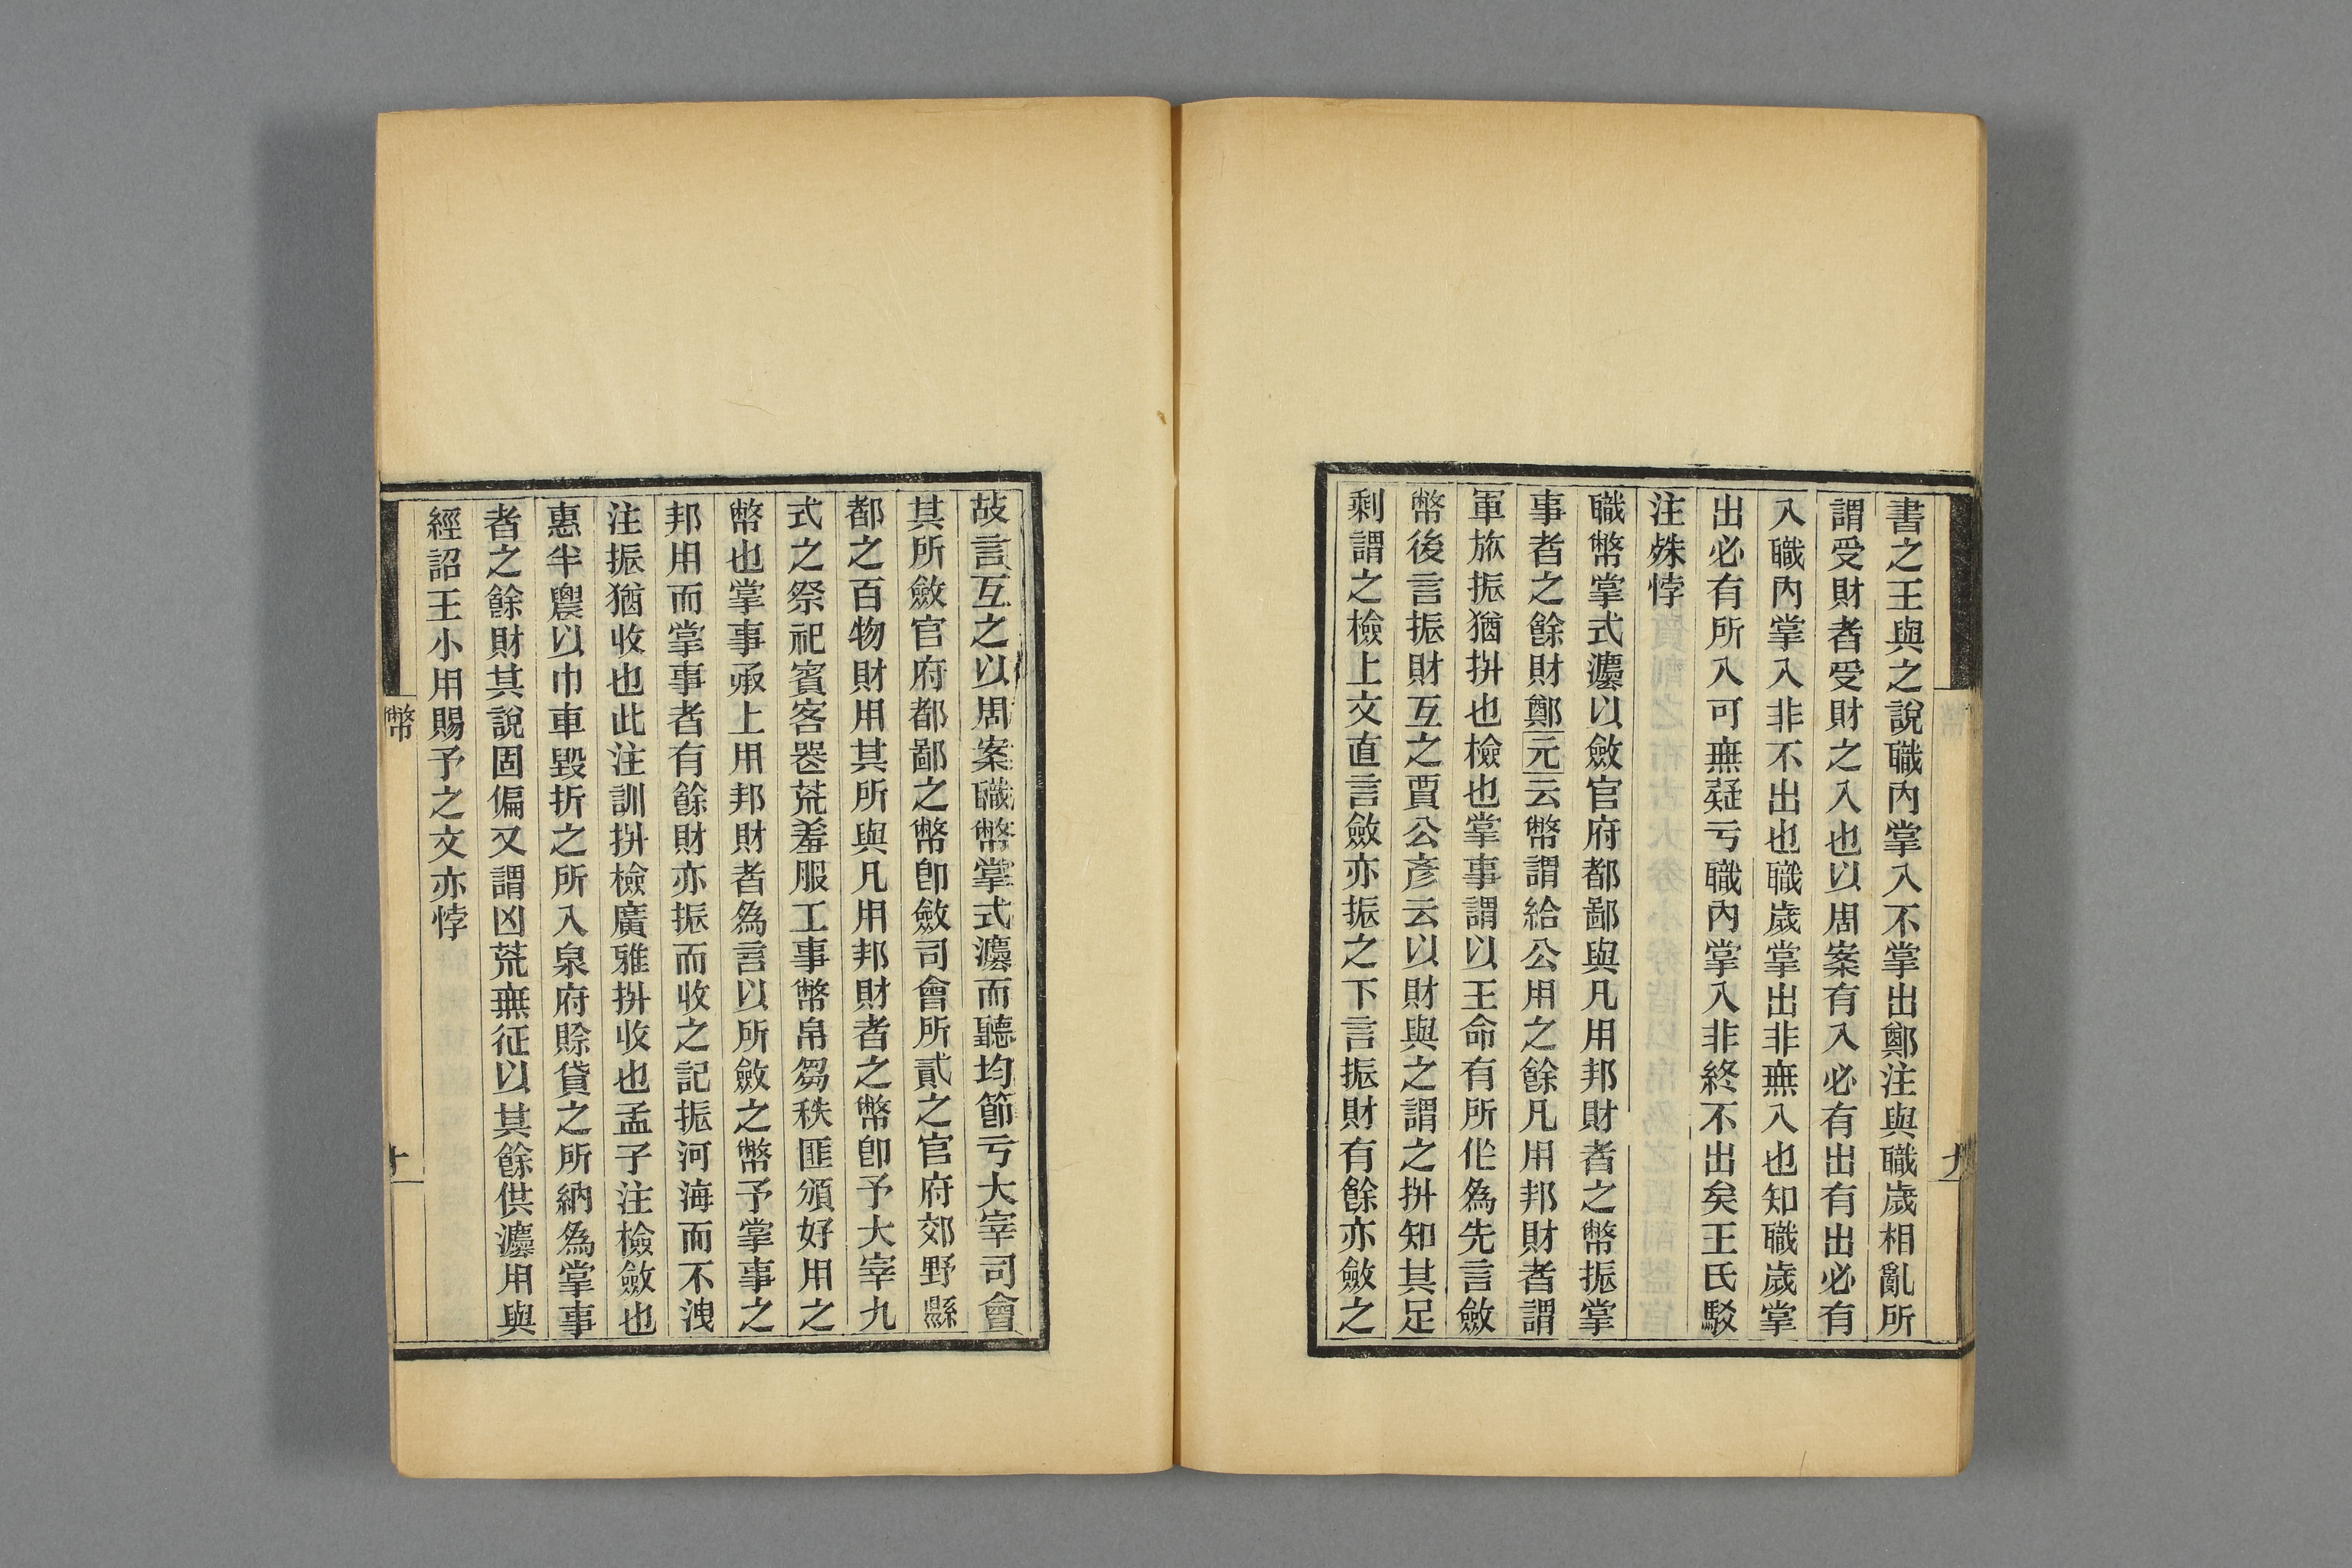 書之王與之說職內掌入不掌出鄭注與職歲相亂所
謂受財者受財之入也以周案有入必有出有出必有
入職內掌入非不出也職歲掌出非無入也知職歲掌
出必有所入可無疑亏職內掌入非終不出矣王氏駮
注殊悖
職幣掌式灋以斂官府都鄙與凡用邦財者之幣振掌
事者之餘財鄭元云幣謂給公用之餘凡用邦財者謂
軍旅振猶拚也檢也掌事謂以王命有所作爲先言斂
幣後言振財互之賈公彥云以財與之謂之拚知其足
剩謂之檢上文直言斂亦振之下言振財有餘亦斂之
九
故言互之以周案職幣掌式灋而聽均節亏大宰司會
其所斂官府都鄙之幣卽斂司會所貳之官府郊野縣
都之百物財用其所與凡用邦財者之幣卽予大宰九
式之祭祀賓客器荒羞服工事幣帛芻秣匪頒好用之
幣也掌事承上用邦財者爲言以所斂之幣予掌事之
邦用而掌事者有餘財亦振而收之記振河海而不洩
注振猶收也此注訓拚檢廣雅拚收也孟子注檢斂也
惠半農以巾車毀折之所入泉府賒貸之所納爲掌事
者之餘財其說固偏又謂凶荒無征以其餘供灋用與
經詔王小用賜予之文亦悖
幣
十